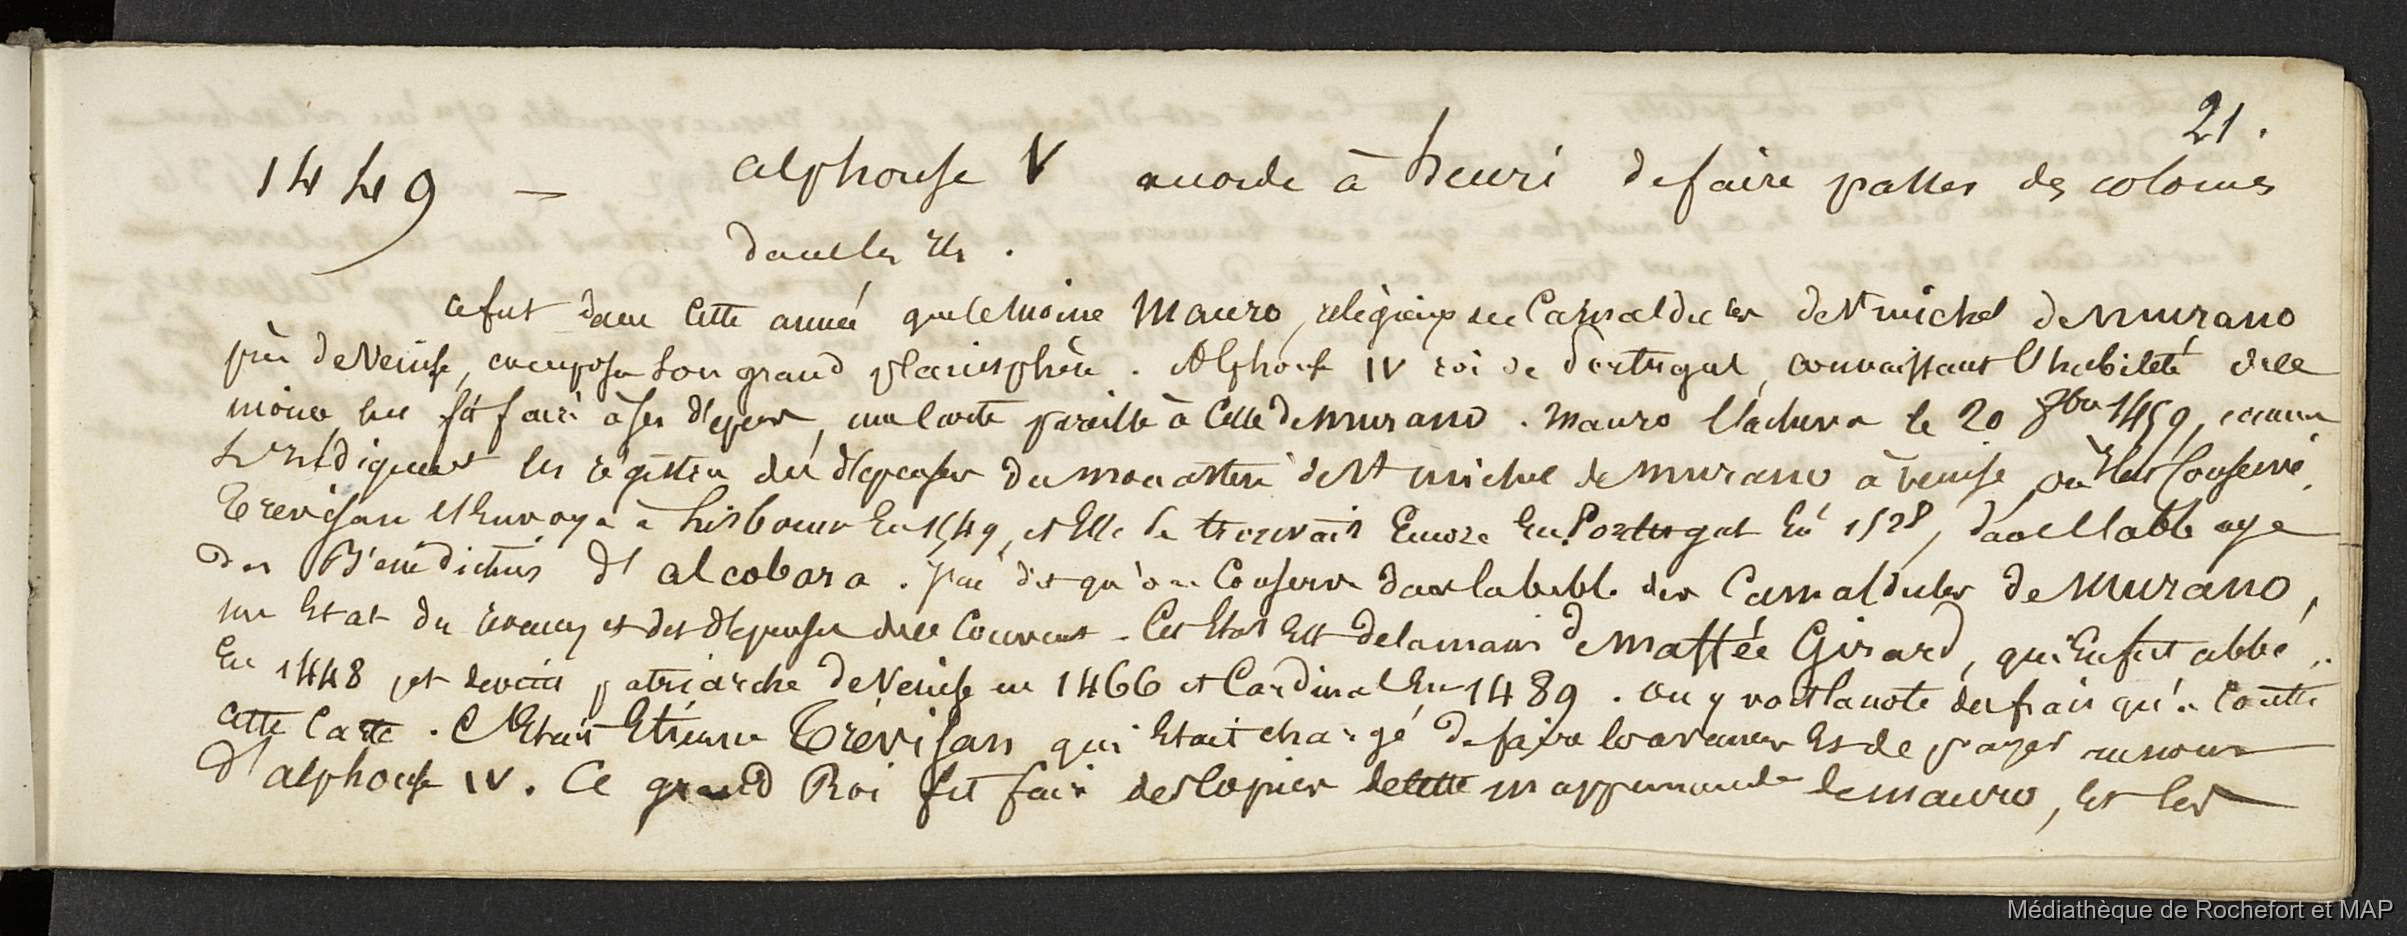 21.
1449 — alphonse V accorde à henri de faire passer des colonies
dans les îles.
ce fut dans cette année que le moine Mauro, religieux des Camaldules de St michel de Murano
près de Venise, composa son grand planisphère. Alphonse IV roi de Portugal, connaissant l'habileté de ce
moine lui fit faire à ses dépens, une carte pareille à celle de Murano. Mauro l'acheva le 20 8bre 1459, comme
l'indiquent les registres des dépenses du monastère de St michel de Murano à Venise, où il est conservé.
Trevisan l'envoya à Lisbonne en 1549, et elle se trouvait encore en Portugal en 1528, dans l'abbaye
des Bénédictins d'alcobara. dit qu'on conserve dans la bibl. des Camaldules de Murano,
un Etat du revenu et des dépenses de ce Couvent. Cet état est de la main de Maffée Girard, qui en fut abbé
en 1448 et devint patriarche de Venise en 1466 et Cardinal en 1489. on y voit la note des frais qu'a coutté
cette carte. C'Etait Etienne Trévisan qui était chargé de faire les avances et de payer au nom
d'alphonse IV. Ce grand Roi fit faire des copies de cette mappemonde de mauro, et les
Médiathèque de Rochefort et MAP